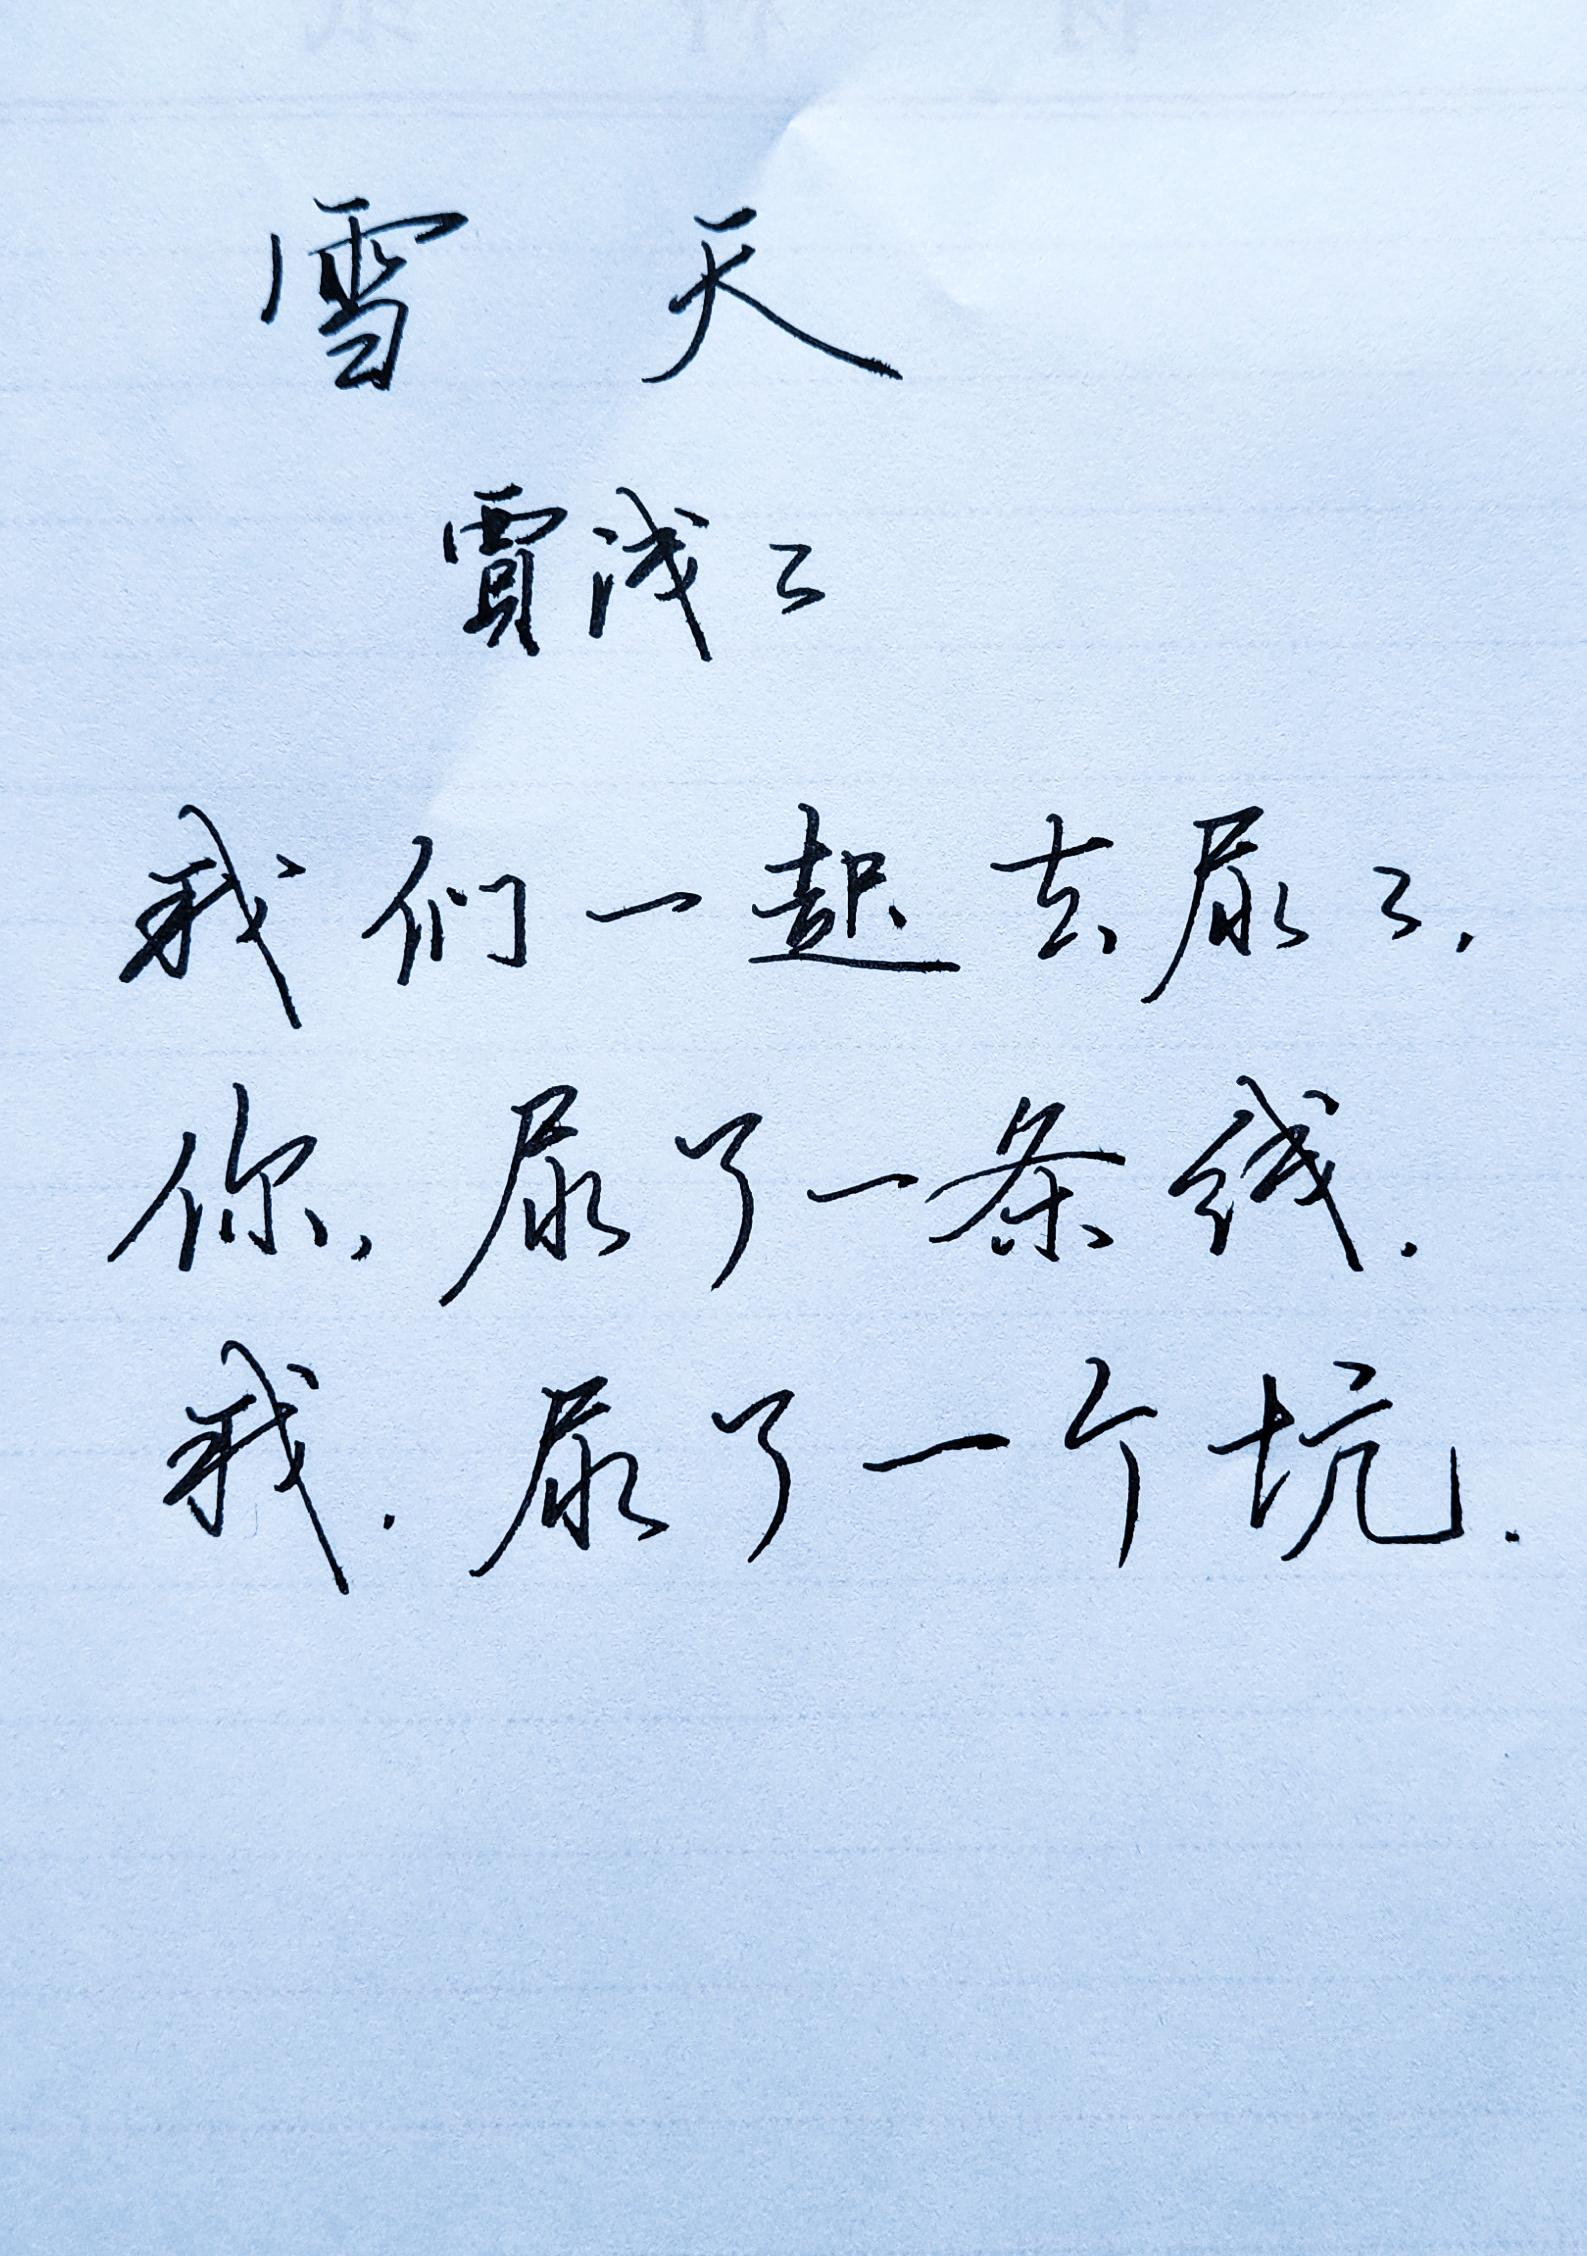 雪天
賈浅々
我们一起去尿々，
你，尿了一条线.
我.尿了一个坑.